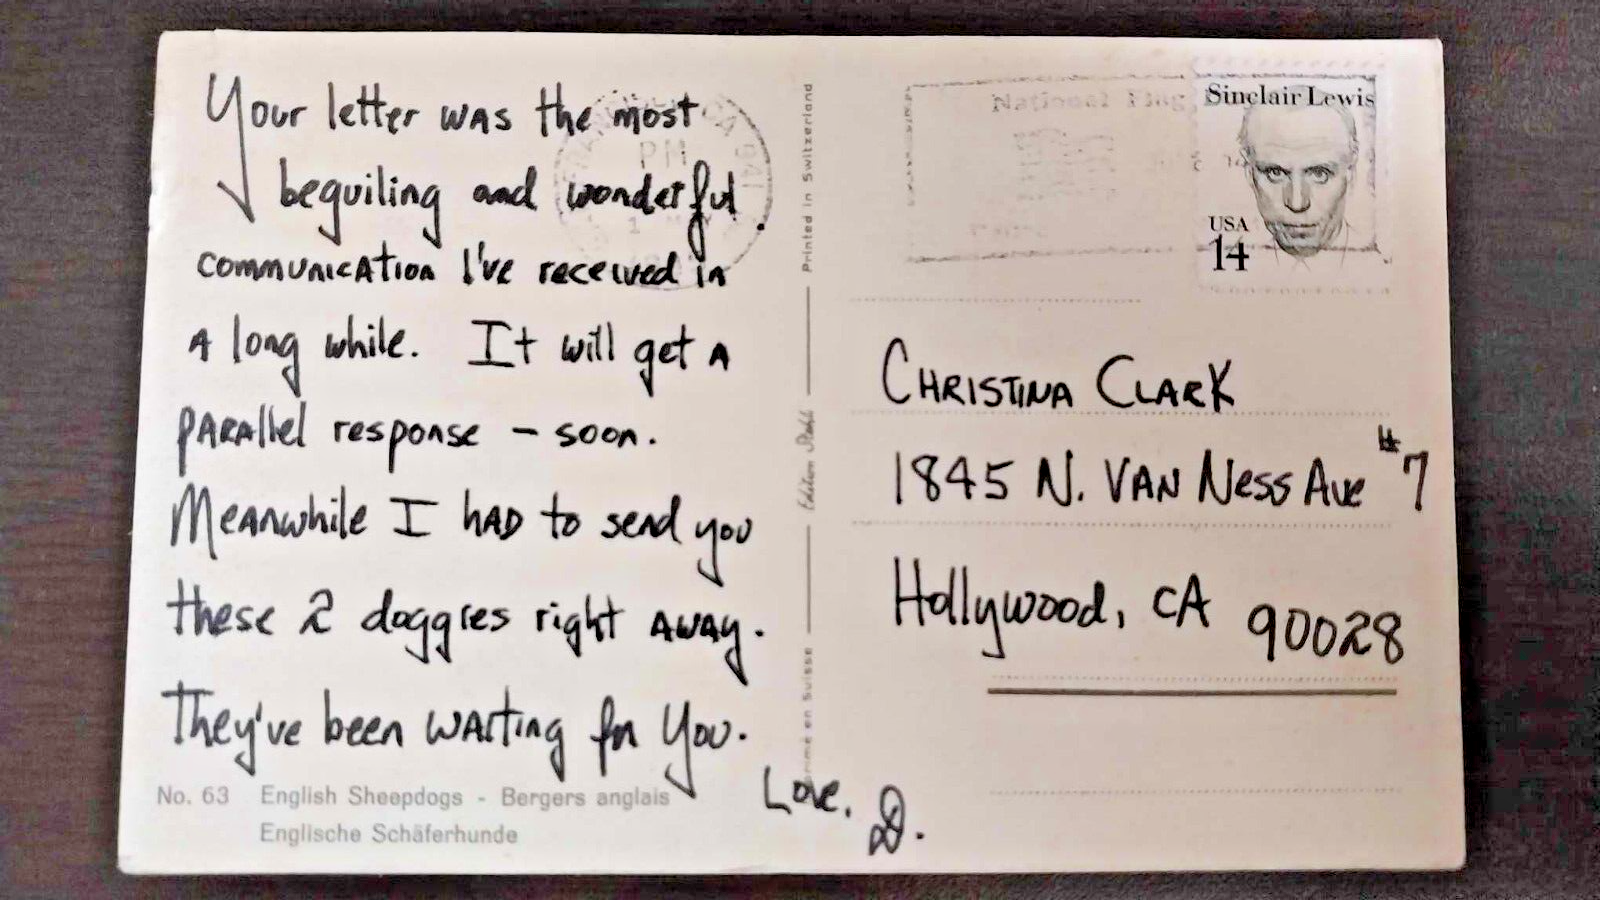 Your letter was the most
beguiling and wonderful
communication I've received in
A long while. It will get A
parallel response – soon.
Meanwhile I had to send you
these 2 doggies right away.
They've been waiting for you.
Love, D.
No. 63 English Sheepdogs - Bergers anglais
Englische Schäferhunde
Printed in Switzerland
en Suisse
PM
National Flag
Sinclair Lewis
USA
14
Christina Clark
1845 N. Van Ness Ave #7
Hollywood, CA 90028